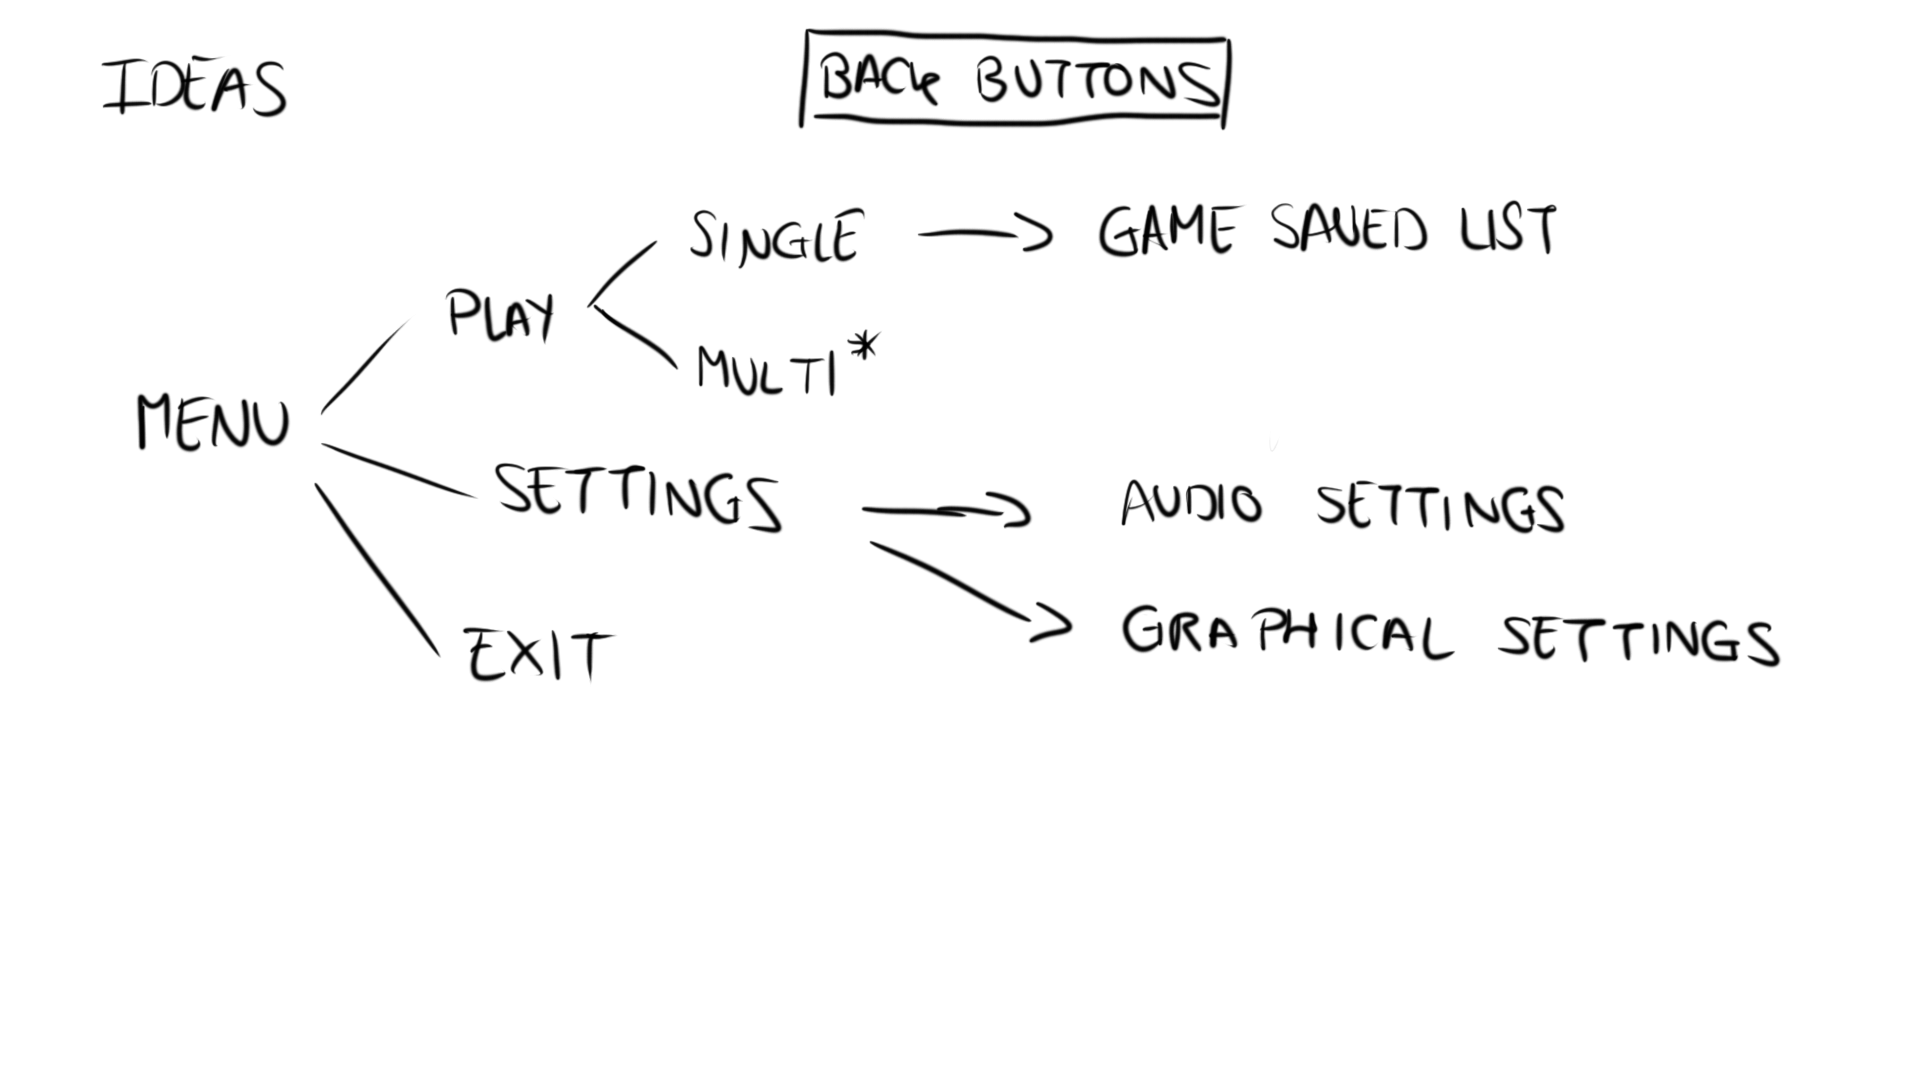 IDEAS
BACK BUTTONS
SINGLE → GAME SAVED LIST
PLAY
MULTI*
MENU
SETTINGS → AUDIO SETTINGS
GRAPHICAL SETTINGS
EXIT